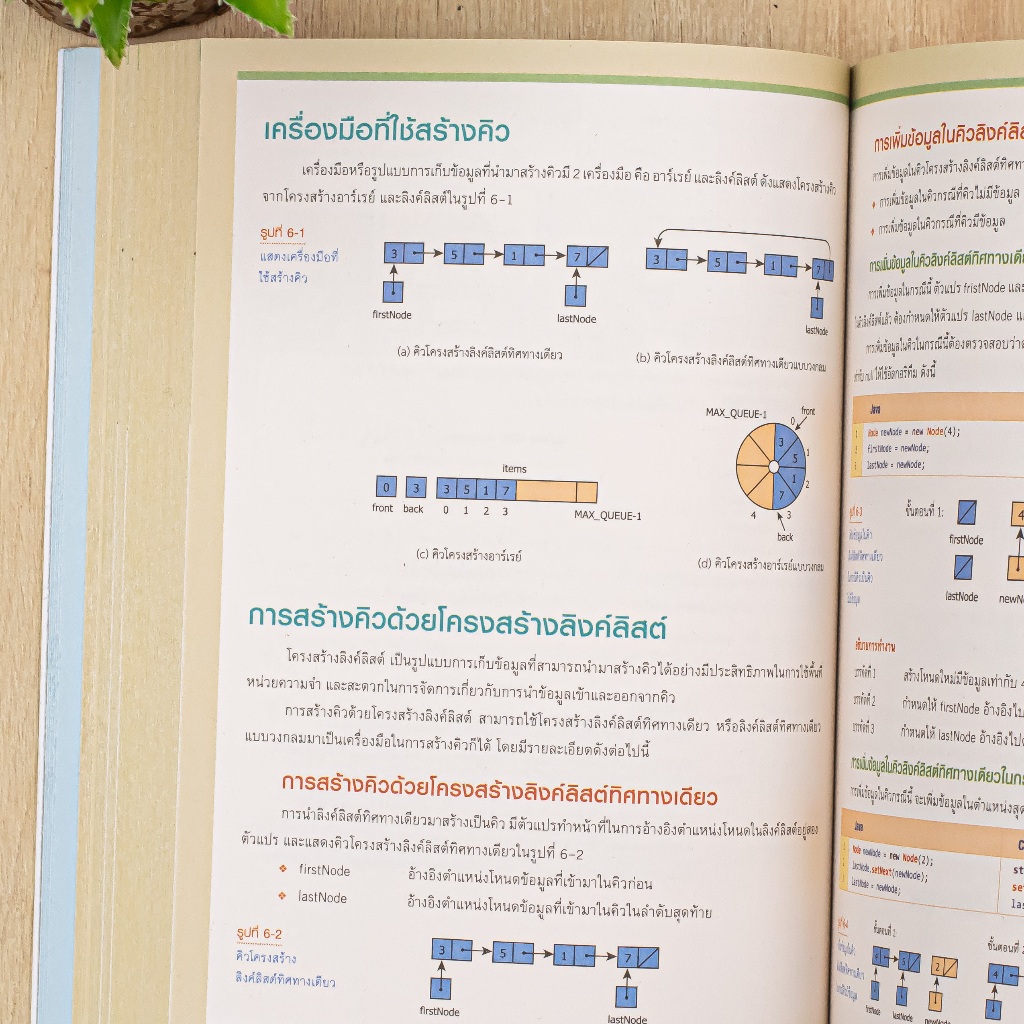 เครื่องมือที่ใช้สร้างคิว
เครื่องมือหรือรูปแบบการเก็บข้อมูลที่นำมาสร้างคิวมี 2 เครื่องมือ คือ อาร์เรย์ และลิงค์ลิสต์ ดังแสดงโครงสร้างคิว
จากโครงสร้างอาร์เรย์ และลิงค์ลิสต์ในรูปที่ 6-1
รูปที่ 6-1
แสดงเครื่องมือที่
ใช้สร้างคิว
3 5 1 7
firstNode lastNode
(a) คิวโครงสร้างลิงค์ลิสต์ทิศทางเดียว
3 5 1 7
lastNode
(b) คิวโครงสร้างลิงค์ลิสต์ทิศทางเดียวแบบวงกลม
items
0 3 3 5 1 7
front back 0 1 2 3 MAX_QUEUE-1
(c) คิวโครงสร้างอาร์เรย์
MAX_QUEUE-1 0 front
3 1
5
1 2
7
4 3
back
(d) คิวโครงสร้างอาร์เรย์แบบวงกลม
การสร้างคิวด้วยโครงสร้างลิงค์ลิสต์
โครงสร้างลิงค์ลิสต์ เป็นรูปแบบการเก็บข้อมูลที่สามารถนำมาสร้างคิวได้อย่างมีประสิทธิภาพในการใช้พื้นที่
หน่วยความจำ และสะดวกในการจัดการเกี่ยวกับการนำข้อมูลเข้าและออกจากคิว
การสร้างคิวด้วยโครงสร้างลิงค์ลิสต์ สามารถใช้โครงสร้างลิงค์ลิสต์ทิศทางเดียว หรือลิงค์ลิสต์ทิศทางเดียว
แบบวงกลมมาเป็นเครื่องมือในการสร้างคิวก็ได้ โดยมีรายละเอียดดังต่อไปนี้
การสร้างคิวด้วยโครงสร้างลิงค์ลิสต์ทิศทางเดียว
การนำลิงค์ลิสต์ทิศทางเดียวมาสร้างเป็นคิว มีตัวแปรทำหน้าที่ในการอ้างอิงตำแหน่งโหนดในลิงค์ลิสต์อยู่สอง
ตัวแปร และแสดงคิวโครงสร้างลิงค์ลิสต์ทิศทางเดียวในรูปที่ 6-2
❖ firstNode อ้างอิงตำแหน่งโหนดข้อมูลที่เข้ามาในคิวก่อน
❖ lastNode อ้างอิงตำแหน่งโหนดข้อมูลที่เข้ามาในคิวในลำดับสุดท้าย
รูปที่ 6-2
คิวโครงสร้าง
ลิงค์ลิสต์ทิศทางเดียว
3 5 1 7
firstNode lastNode
การเพิ่มข้อมูลในคิวลิงค์ลิส
การเพิ่มข้อมูลในคิวโครงสร้างลิงค์ลิสต์ทิศทา
❖ การเพิ่มข้อมูลในคิวกรณีที่คิวไม่มีข้อมูล
❖ การเพิ่มข้อมูลในคิวกรณีที่คิวมีข้อมูล
การเพิ่มข้อมูลในคิวลิงค์ลิสต์ทิศทางเดีย
การเพิ่มข้อมูลในกรณีนี้ ตัวแปร fristNode และ
ต้องกำหนดให้ตัวแปร lastNode แ
การเพิ่มข้อมูลในคิวในกรณีนี้ต้องตรวจสอบว่า
null ให้ใช้อัลกอริทึม ดังนี้
Java
1 Node newNode = new Node(4);
2 firstNode = newNode;
3 lastNode = newNode;
ขั้นตอนที่ 1:
4
firstNode
lastNode newN
อธิบายการทำงาน
บรรทัดที่ 1 สร้างโหนดใหม่มีข้อมูลเท่ากับ 4
บรรทัดที่ 2 กำหนดให้ firstNode อ้างอิงไป
บรรทัดที่ 3 กำหนดให้ lastNode อ้างอิงไป
การเพิ่มข้อมูลในคิวลิงค์ลิสต์ทิศทางเดียวในก
การเพิ่มข้อมูลในคิวกรณีนี้ จะเพิ่มข้อมูลในตำแหน่งสุด
Java C
1 Node newNode = new Node(2); st
2 lastNode.setNext(newNode); set
3 lastNode = newNode; las
ขั้นตอนที่ 1: ขั้นตอนที่ 2
4 5 2 4
firstNode lastNode newNode